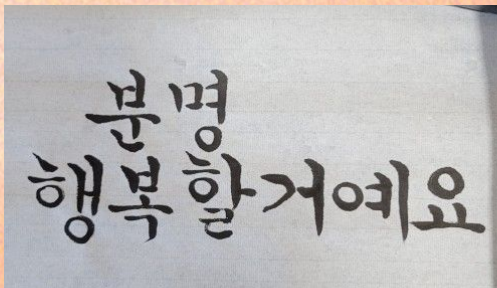 분명
행복할거예요